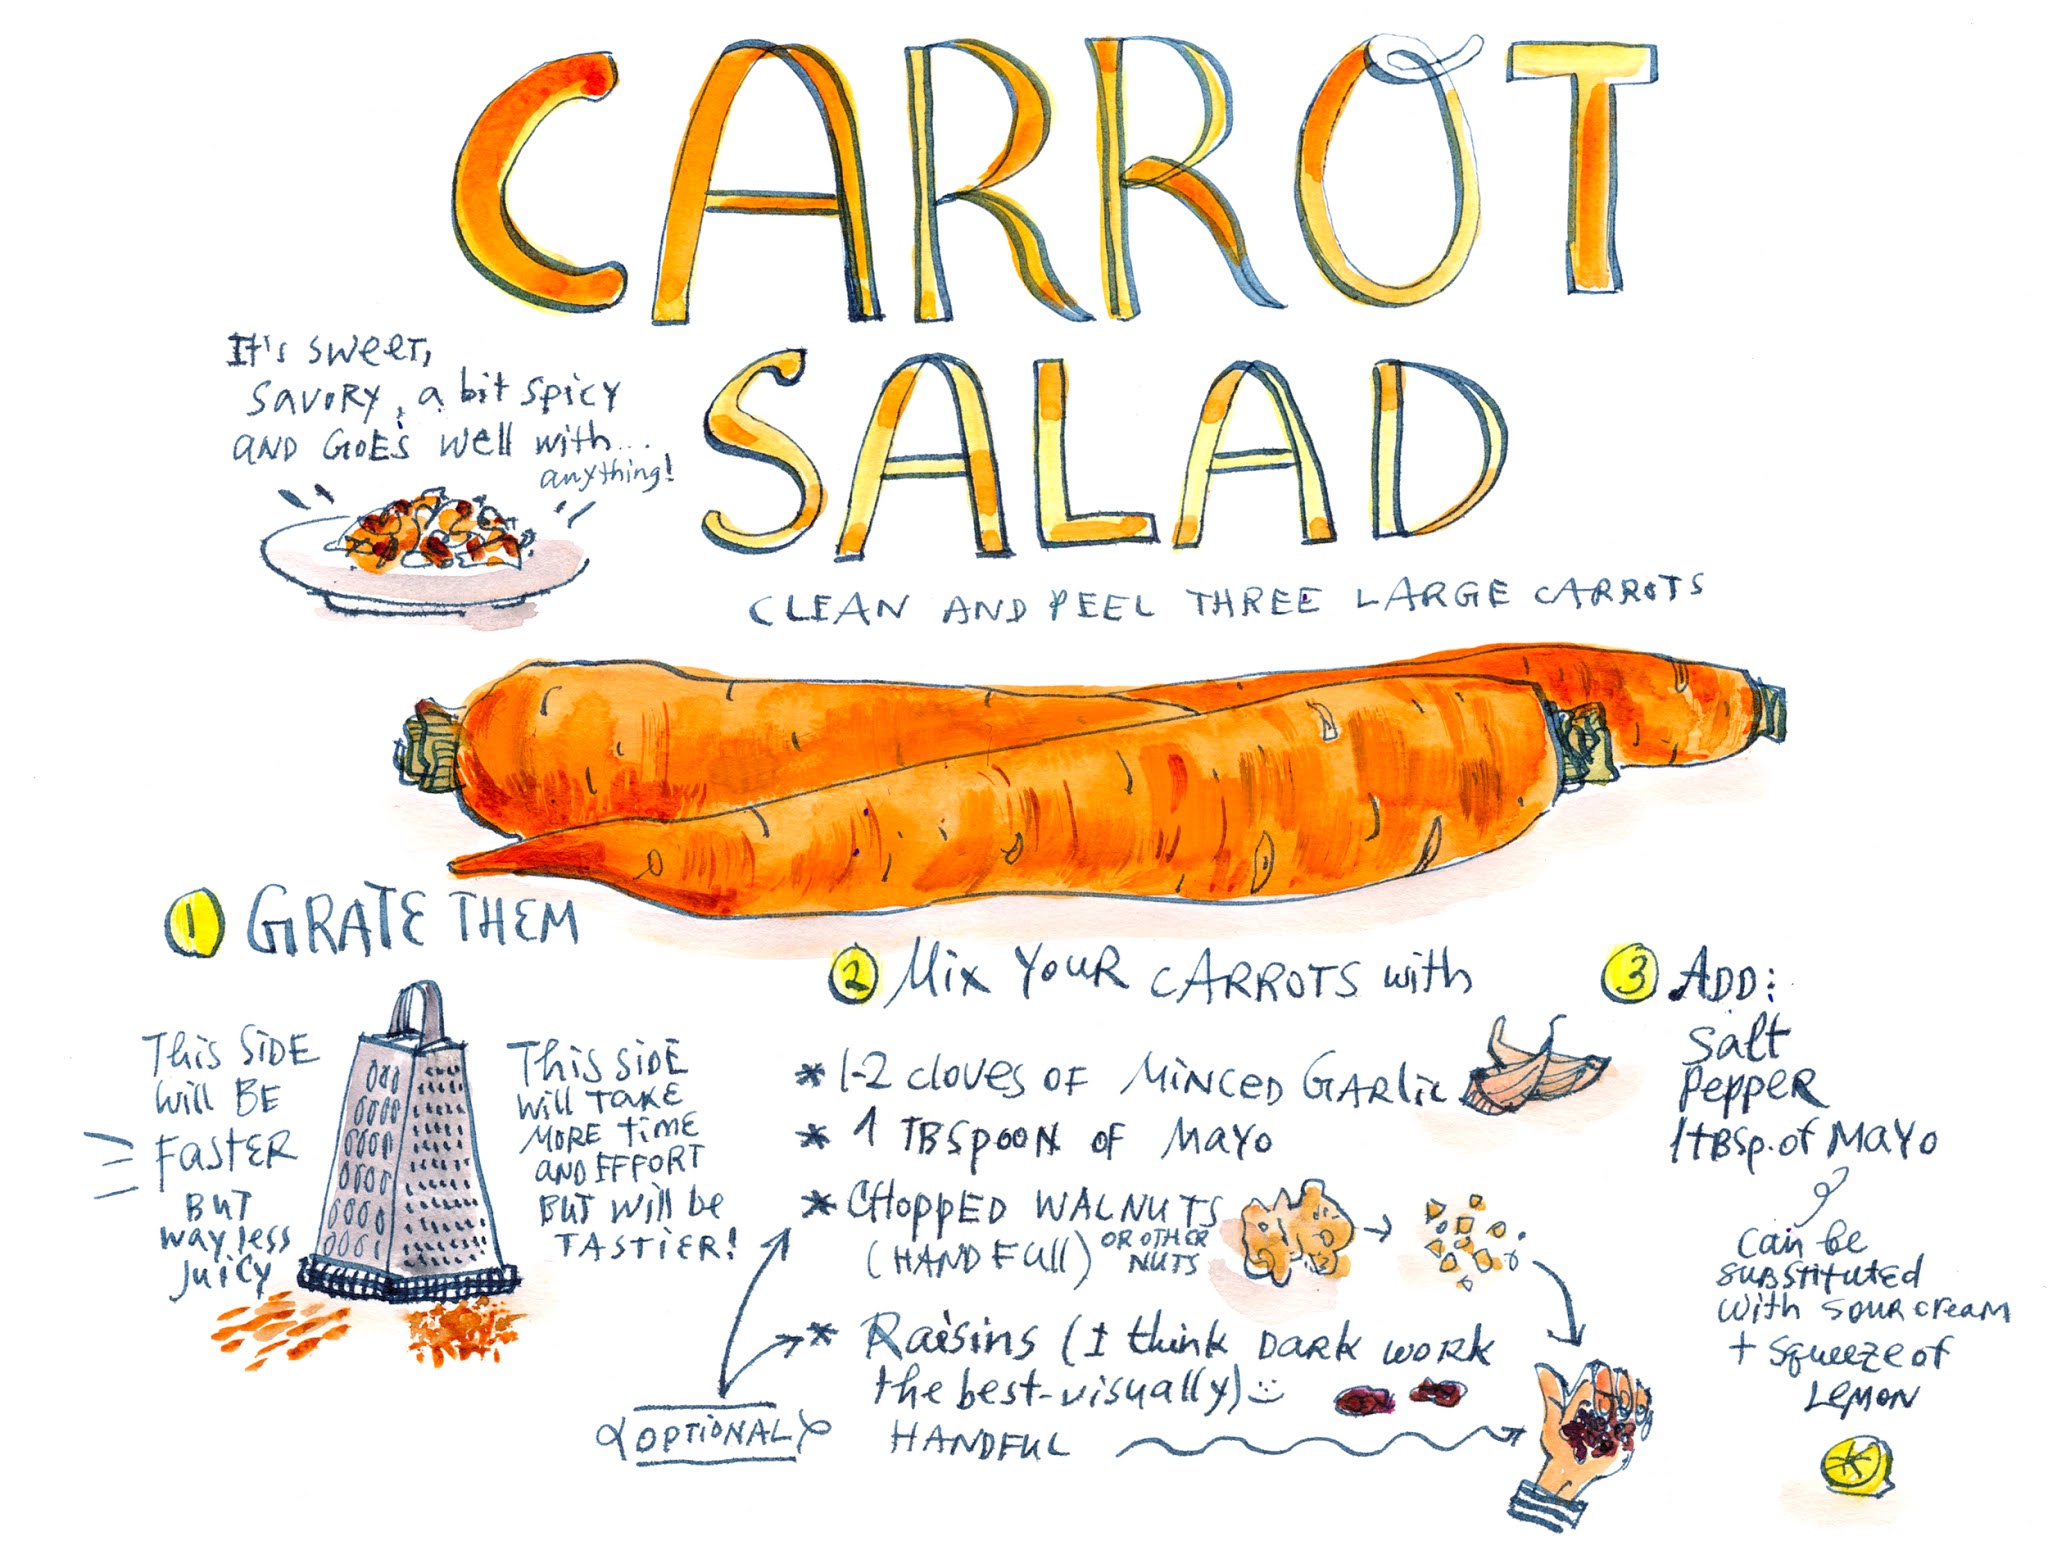 CARROT
SALAD
It's sweet,
savory, a bit spicy
and goes well with...
anything!
CLEAN AND PEEL THREE LARGE CARROTS
1 GRATE THEM
This side
will be
faster
but
way less
juicy
This side
will take
more time
and effort
but will be
tastier!
2 Mix your carrots with
* 1-2 cloves of minced garlic
* 1 tbspoon of mayo
* Chopped walnuts
(handfull) or other
nuts
* Raisins (I think dark work
the best-visually) :)
handful
optional
3 Add:
Salt
Pepper
1 tbsp. of mayo
can be
substituted
with sour cream
+ squeeze of
lemon